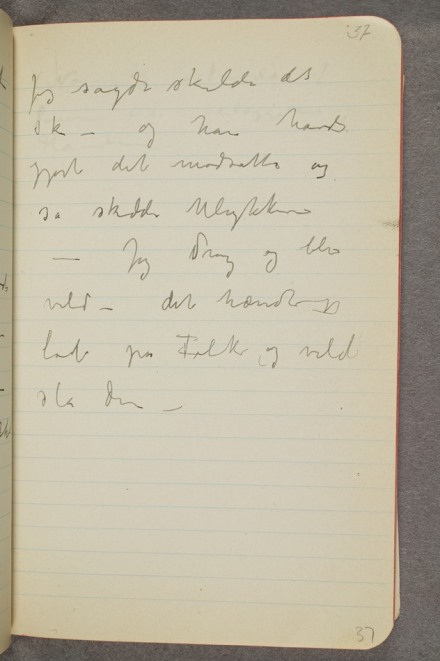 37
Jeg sagde skulde det
sk – og han havde
gjort det modsatte og
sa skedde Ulykken
– Jeg Drog og blev
vild – det hændte jeg
løb på Folk og vild
sla dem –
37